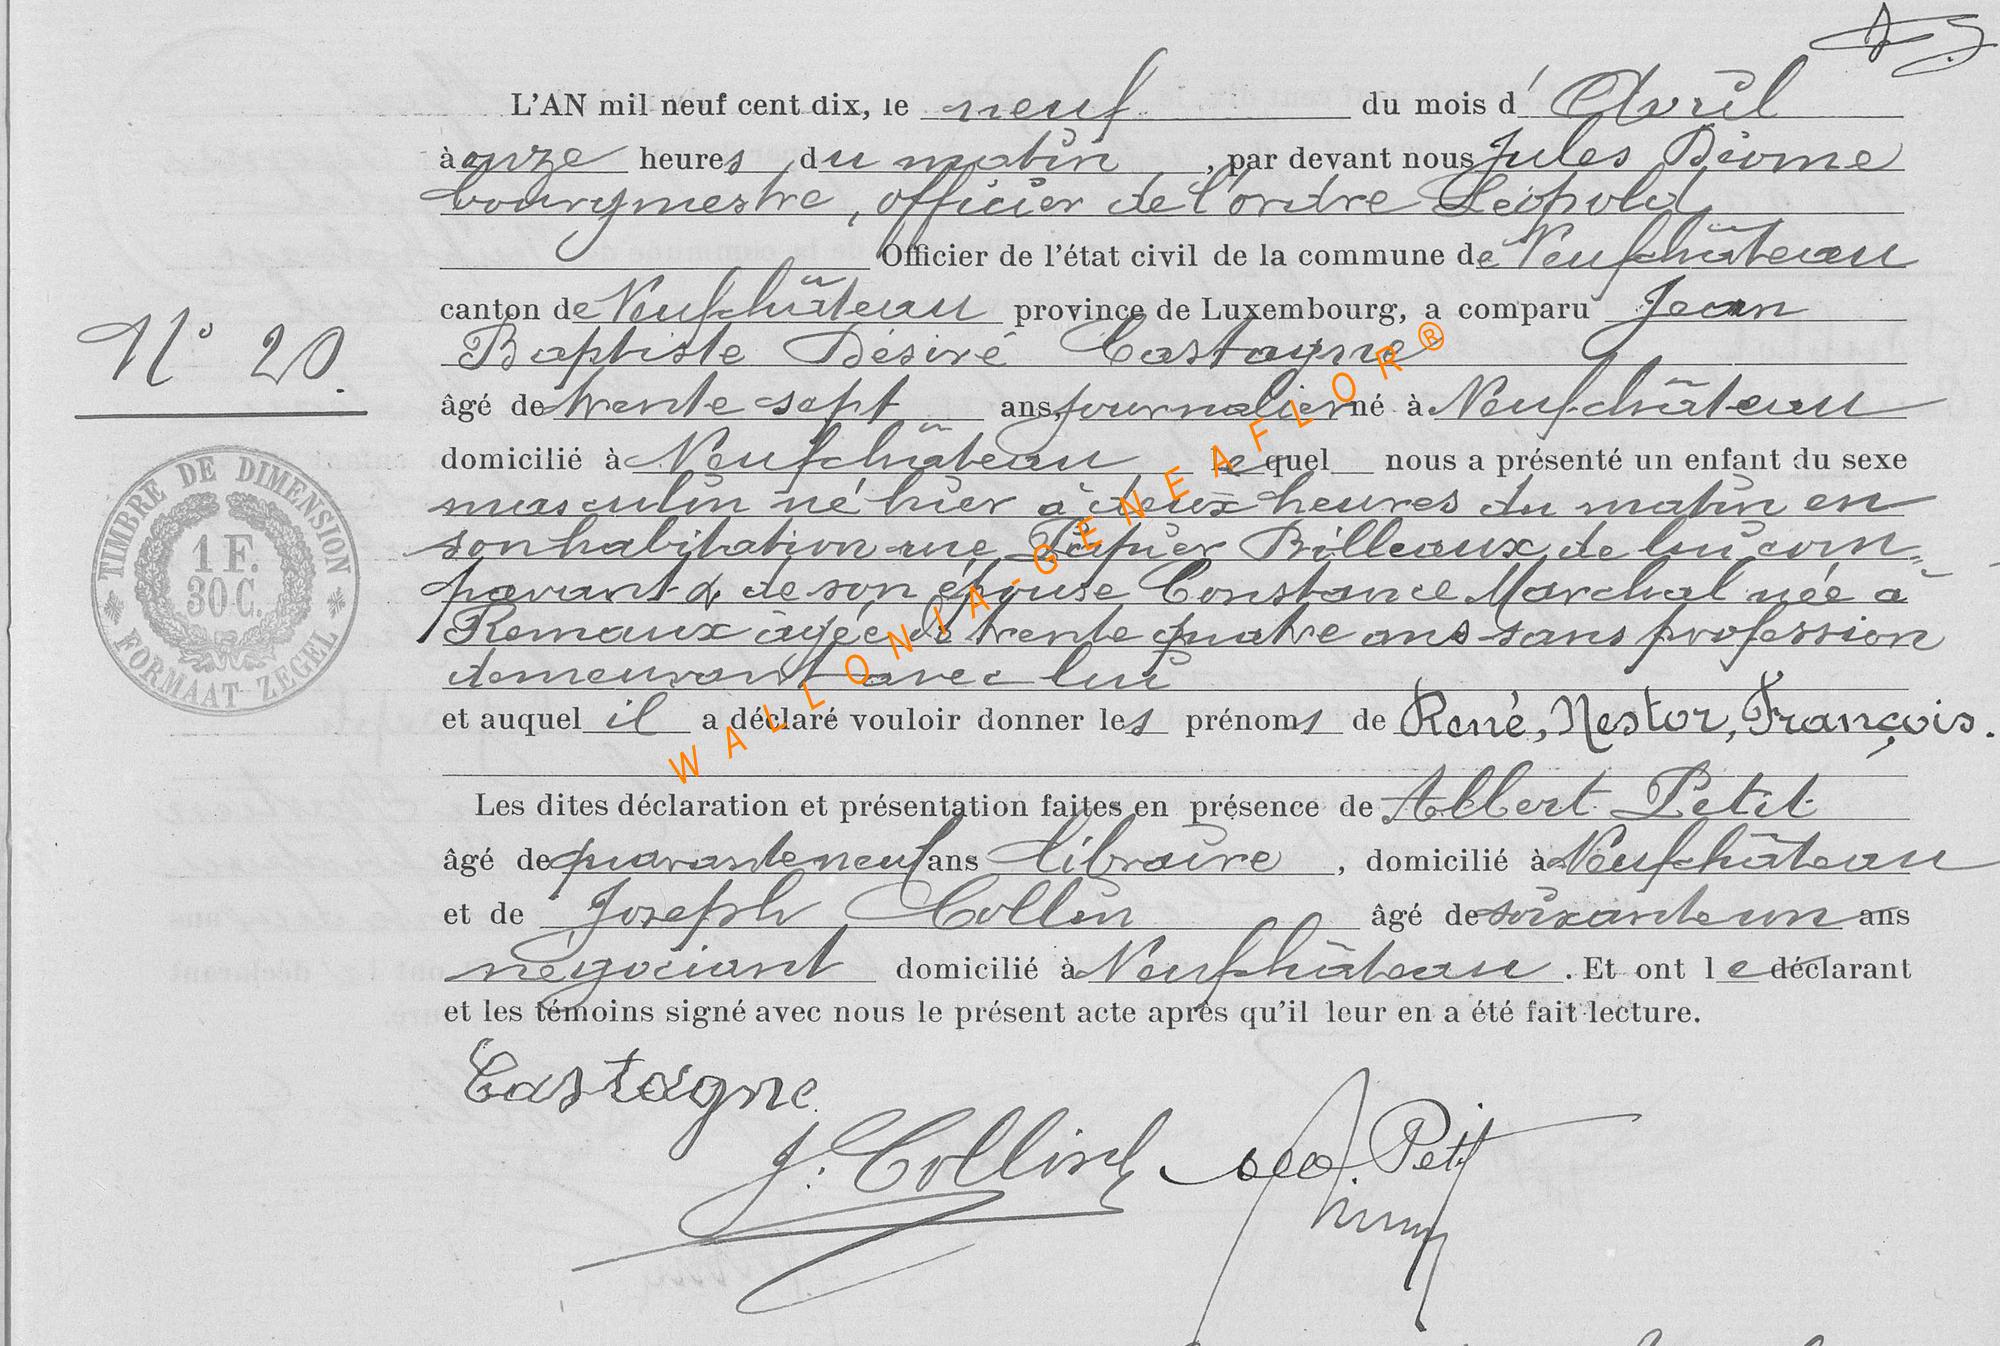 L'AN mil neuf cent dix, le neuf du mois d' Avril
à onze heures du matin, par devant nous Jules
bourgmestre, officier de l'ordre Léopold
Officier de l'état civil de la commune de Neufchâteau
canton de Neufchâteau province de Luxembourg, a comparu Jean
Baptiste Désiré Castagne
N° 20.
âgé de trente sept ans, journalier né à Neufchâteau
domicilié à Neufchâteau lequel nous a présenté un enfant du sexe
masculin né hier à deux heures du matin en
son habitation rue Billeaux, de lui com
parant & de son épouse Constance Marchal née à
Remaux âgée de trente quatre ans sans profession
demeurant avec lui
et auquel il a déclaré vouloir donner les prénoms de René, Nestor, François.
Les dites déclaration et présentation faites en présence de Albert Petit
âgé de quarante neuf ans libraire, domicilié à Neufchâteau
et de Joseph Collin âgé de soixante un ans
négociant domicilié à Neufchâteau. Et ont le déclarant
et les témoins signé avec nous le présent acte après qu'il leur en a été fait lecture.
Castagne
J. Collin Petit
TIMBRE DE DIMENSION
1 F.
30 C.
FORMAAT ZEGEL
WALLONIA-GENEAFLOR®